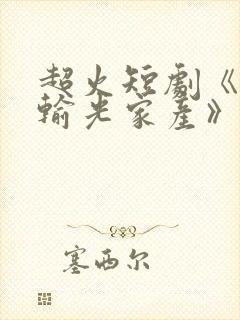 超火短劇《
輸光家產》
塞西尔